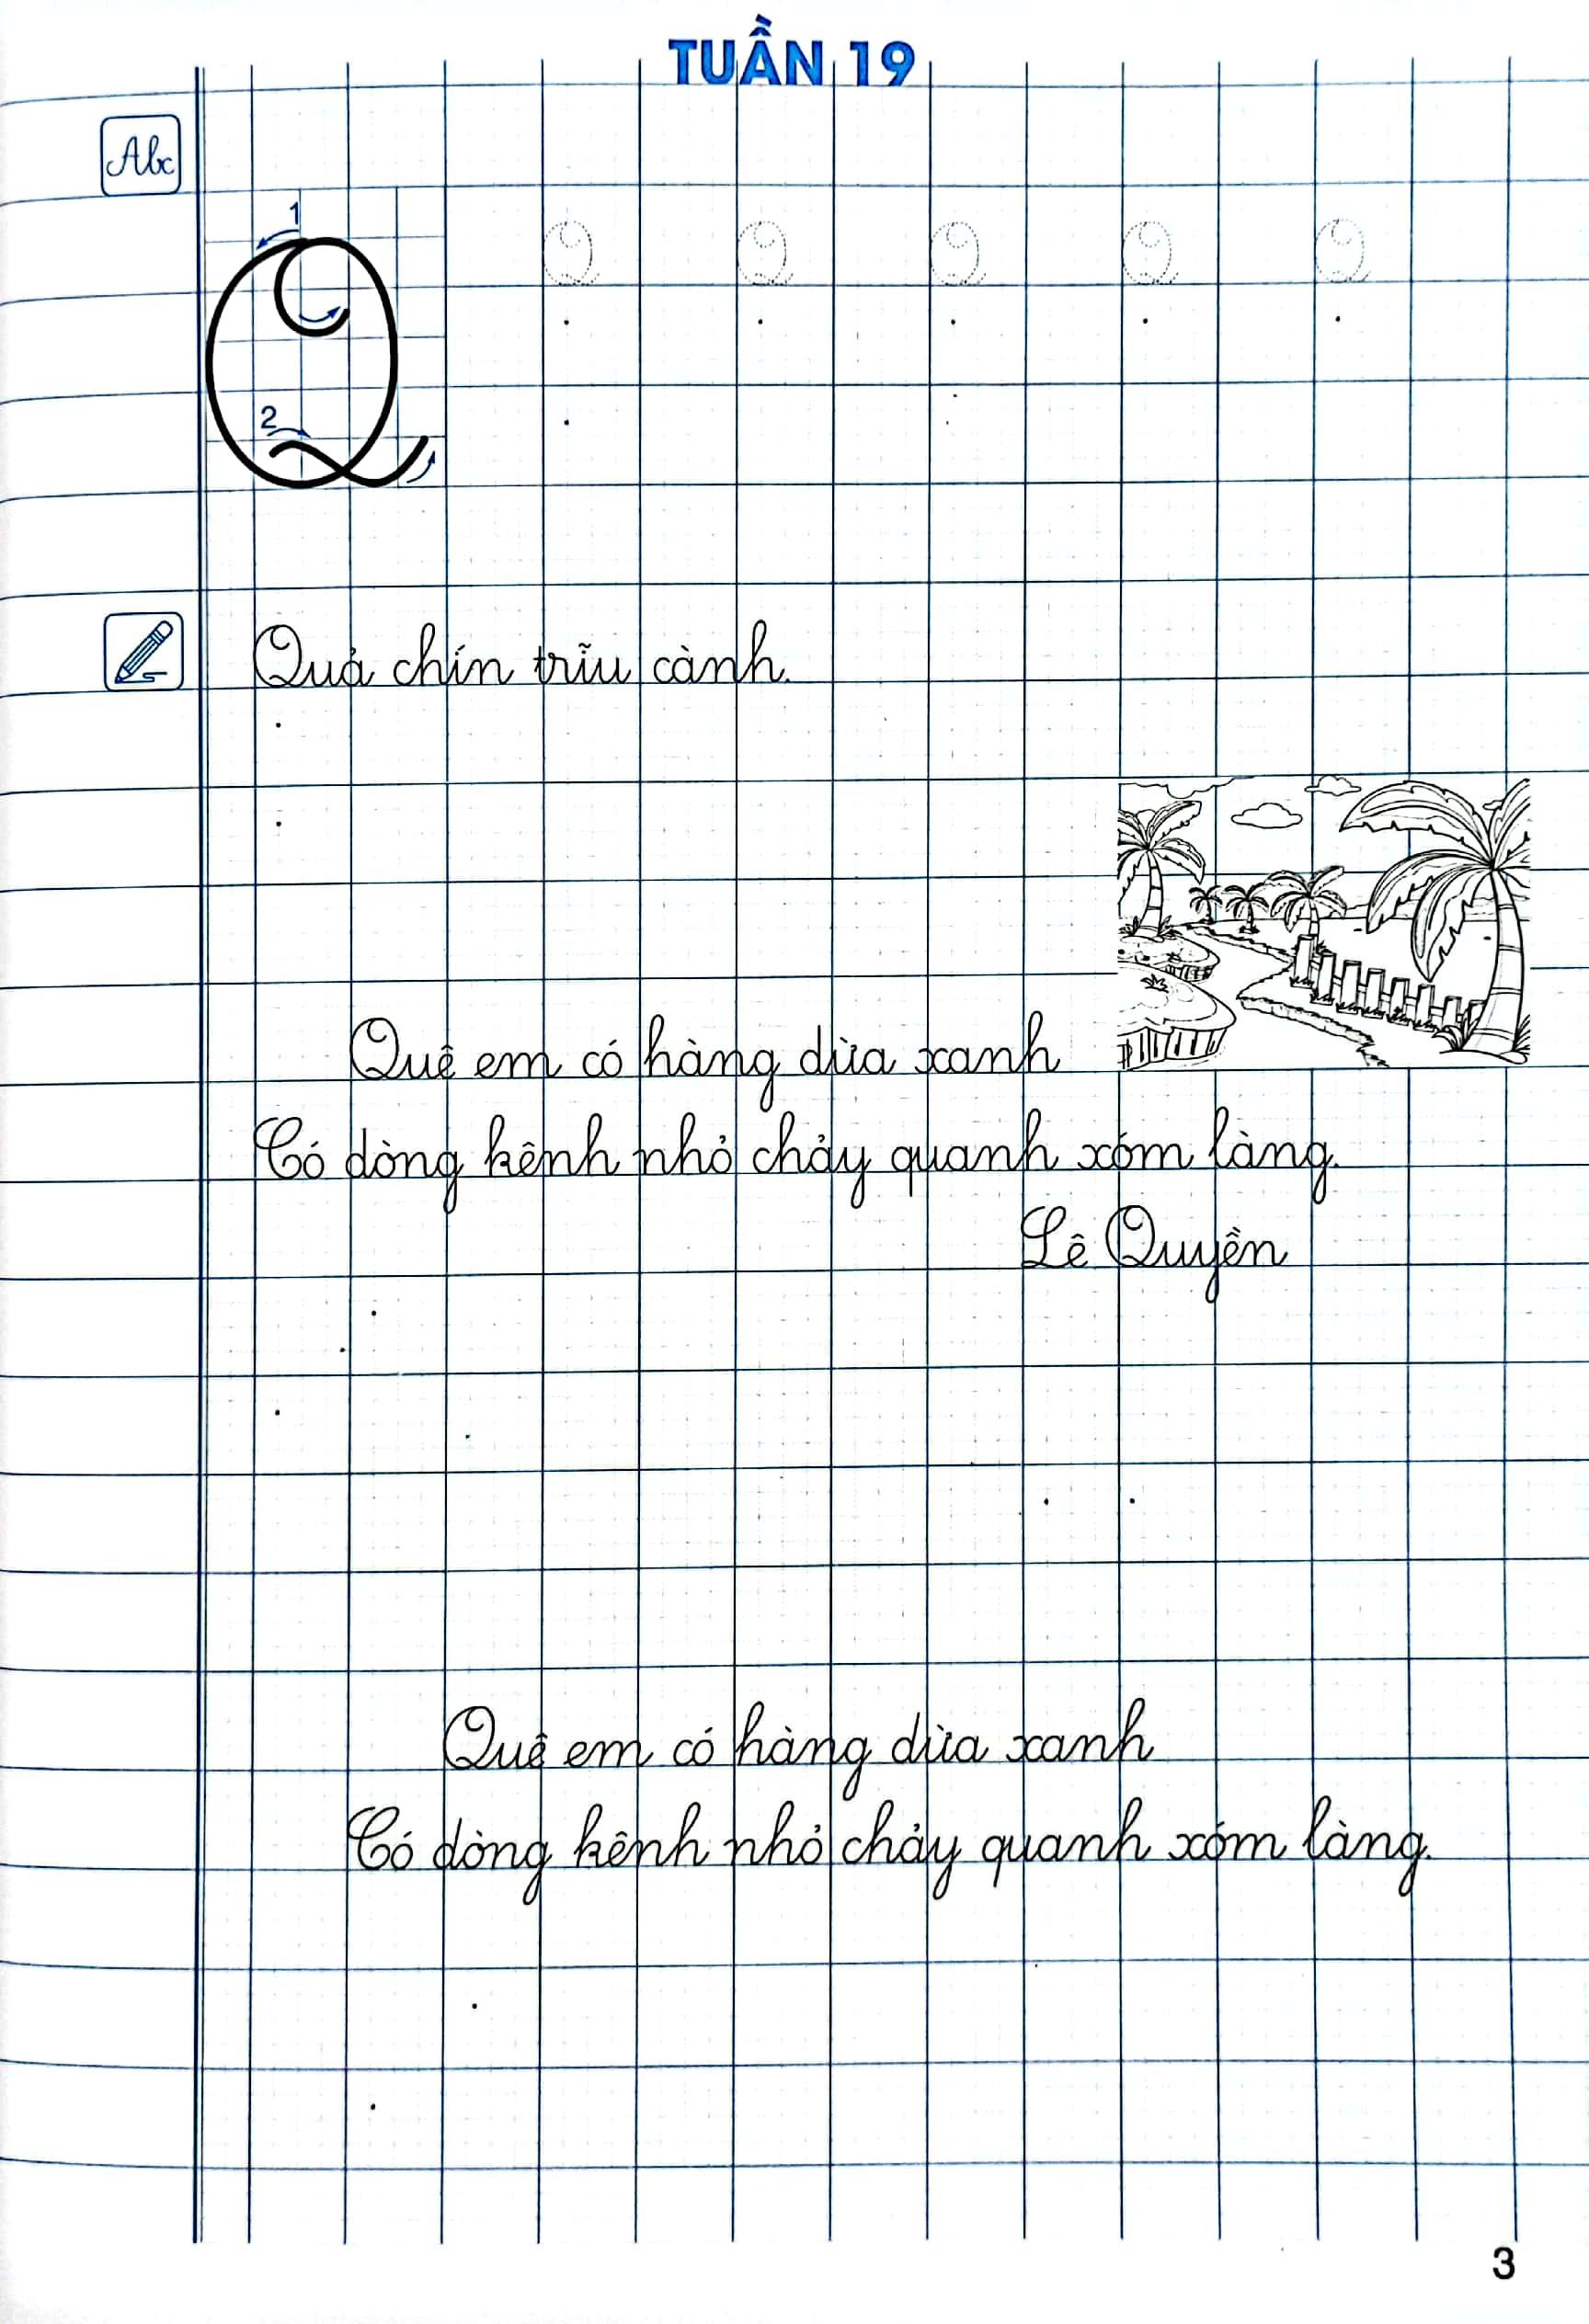 TUẦN 19
Abc
1
Q Q Q Q Q Q
2
Quả chín trĩu cành.
Quê em có hàng dừa xanh
Có dòng kênh nhỏ chảy quanh xóm làng.
Lê Quyền
Quê em có hàng dừa xanh
Có dòng kênh nhỏ chảy quanh xóm làng.
3